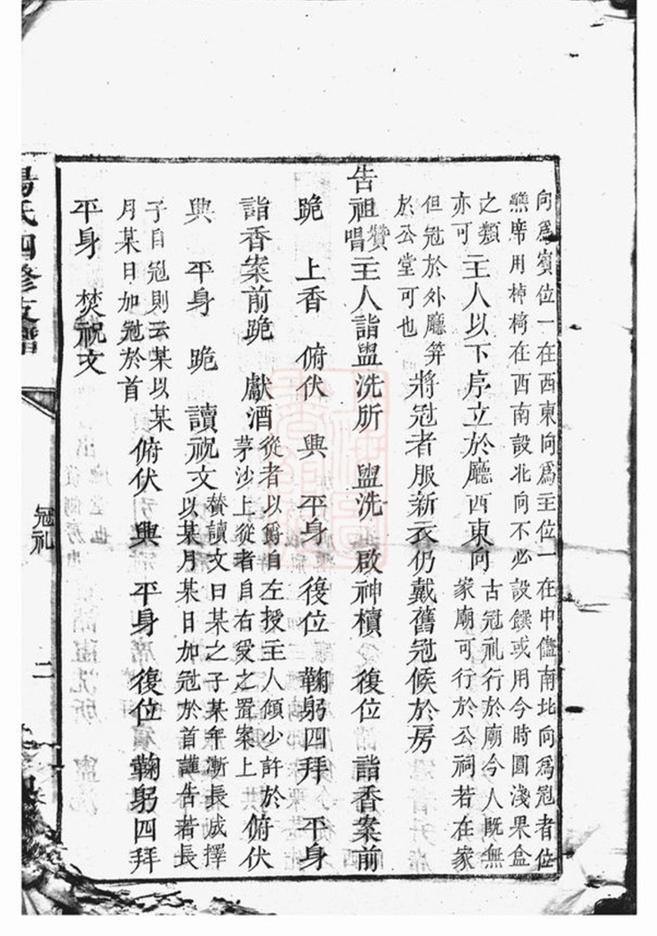 向為賓位一在西東向為主位一在中儘南北向為冠者位
醮席用棹椅在西南設北向不必設饌或用今時圓淺果盒
之類
亦可
主人以下序立於廳西東向
古冠礼行於廟今人既無
家廟可行於公祠若在家
但冠於外廳筭
於公堂可也
將冠者服新衣仍戴舊冠候於房
告祖 贊唱 主人詣盥洗所 盥洗 啟神櫝 復位 詣香案前
跪 上香 俯伏 興 平身 復位 鞠躬四拜 平身
詣香案前跪 獻酒
從者以爵自左授主人傾少許於
茅沙上從者自右受之置案上
俯伏
興 平身 跪 讀祝文
贊讀文曰某之子某年漸長成擇
以某月某日加冠於首謹告若長
子自冠則云某以某
月某日加冠於首
俯伏 興 平身 復位 鞠躬四拜
平身 焚祝文
氏四修支譜
冠礼
二